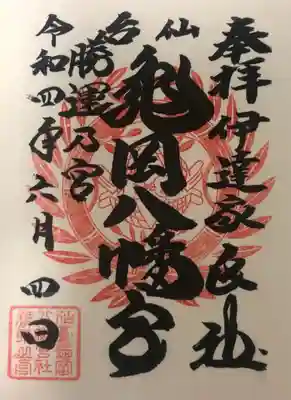 奉拝伊達
仙台
亀岡八幡宮
勝運乃宮
令和四年六月四日